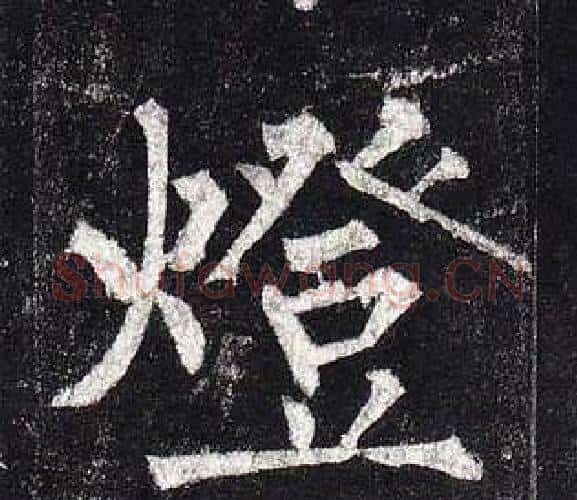 燈
Shufawang.CN